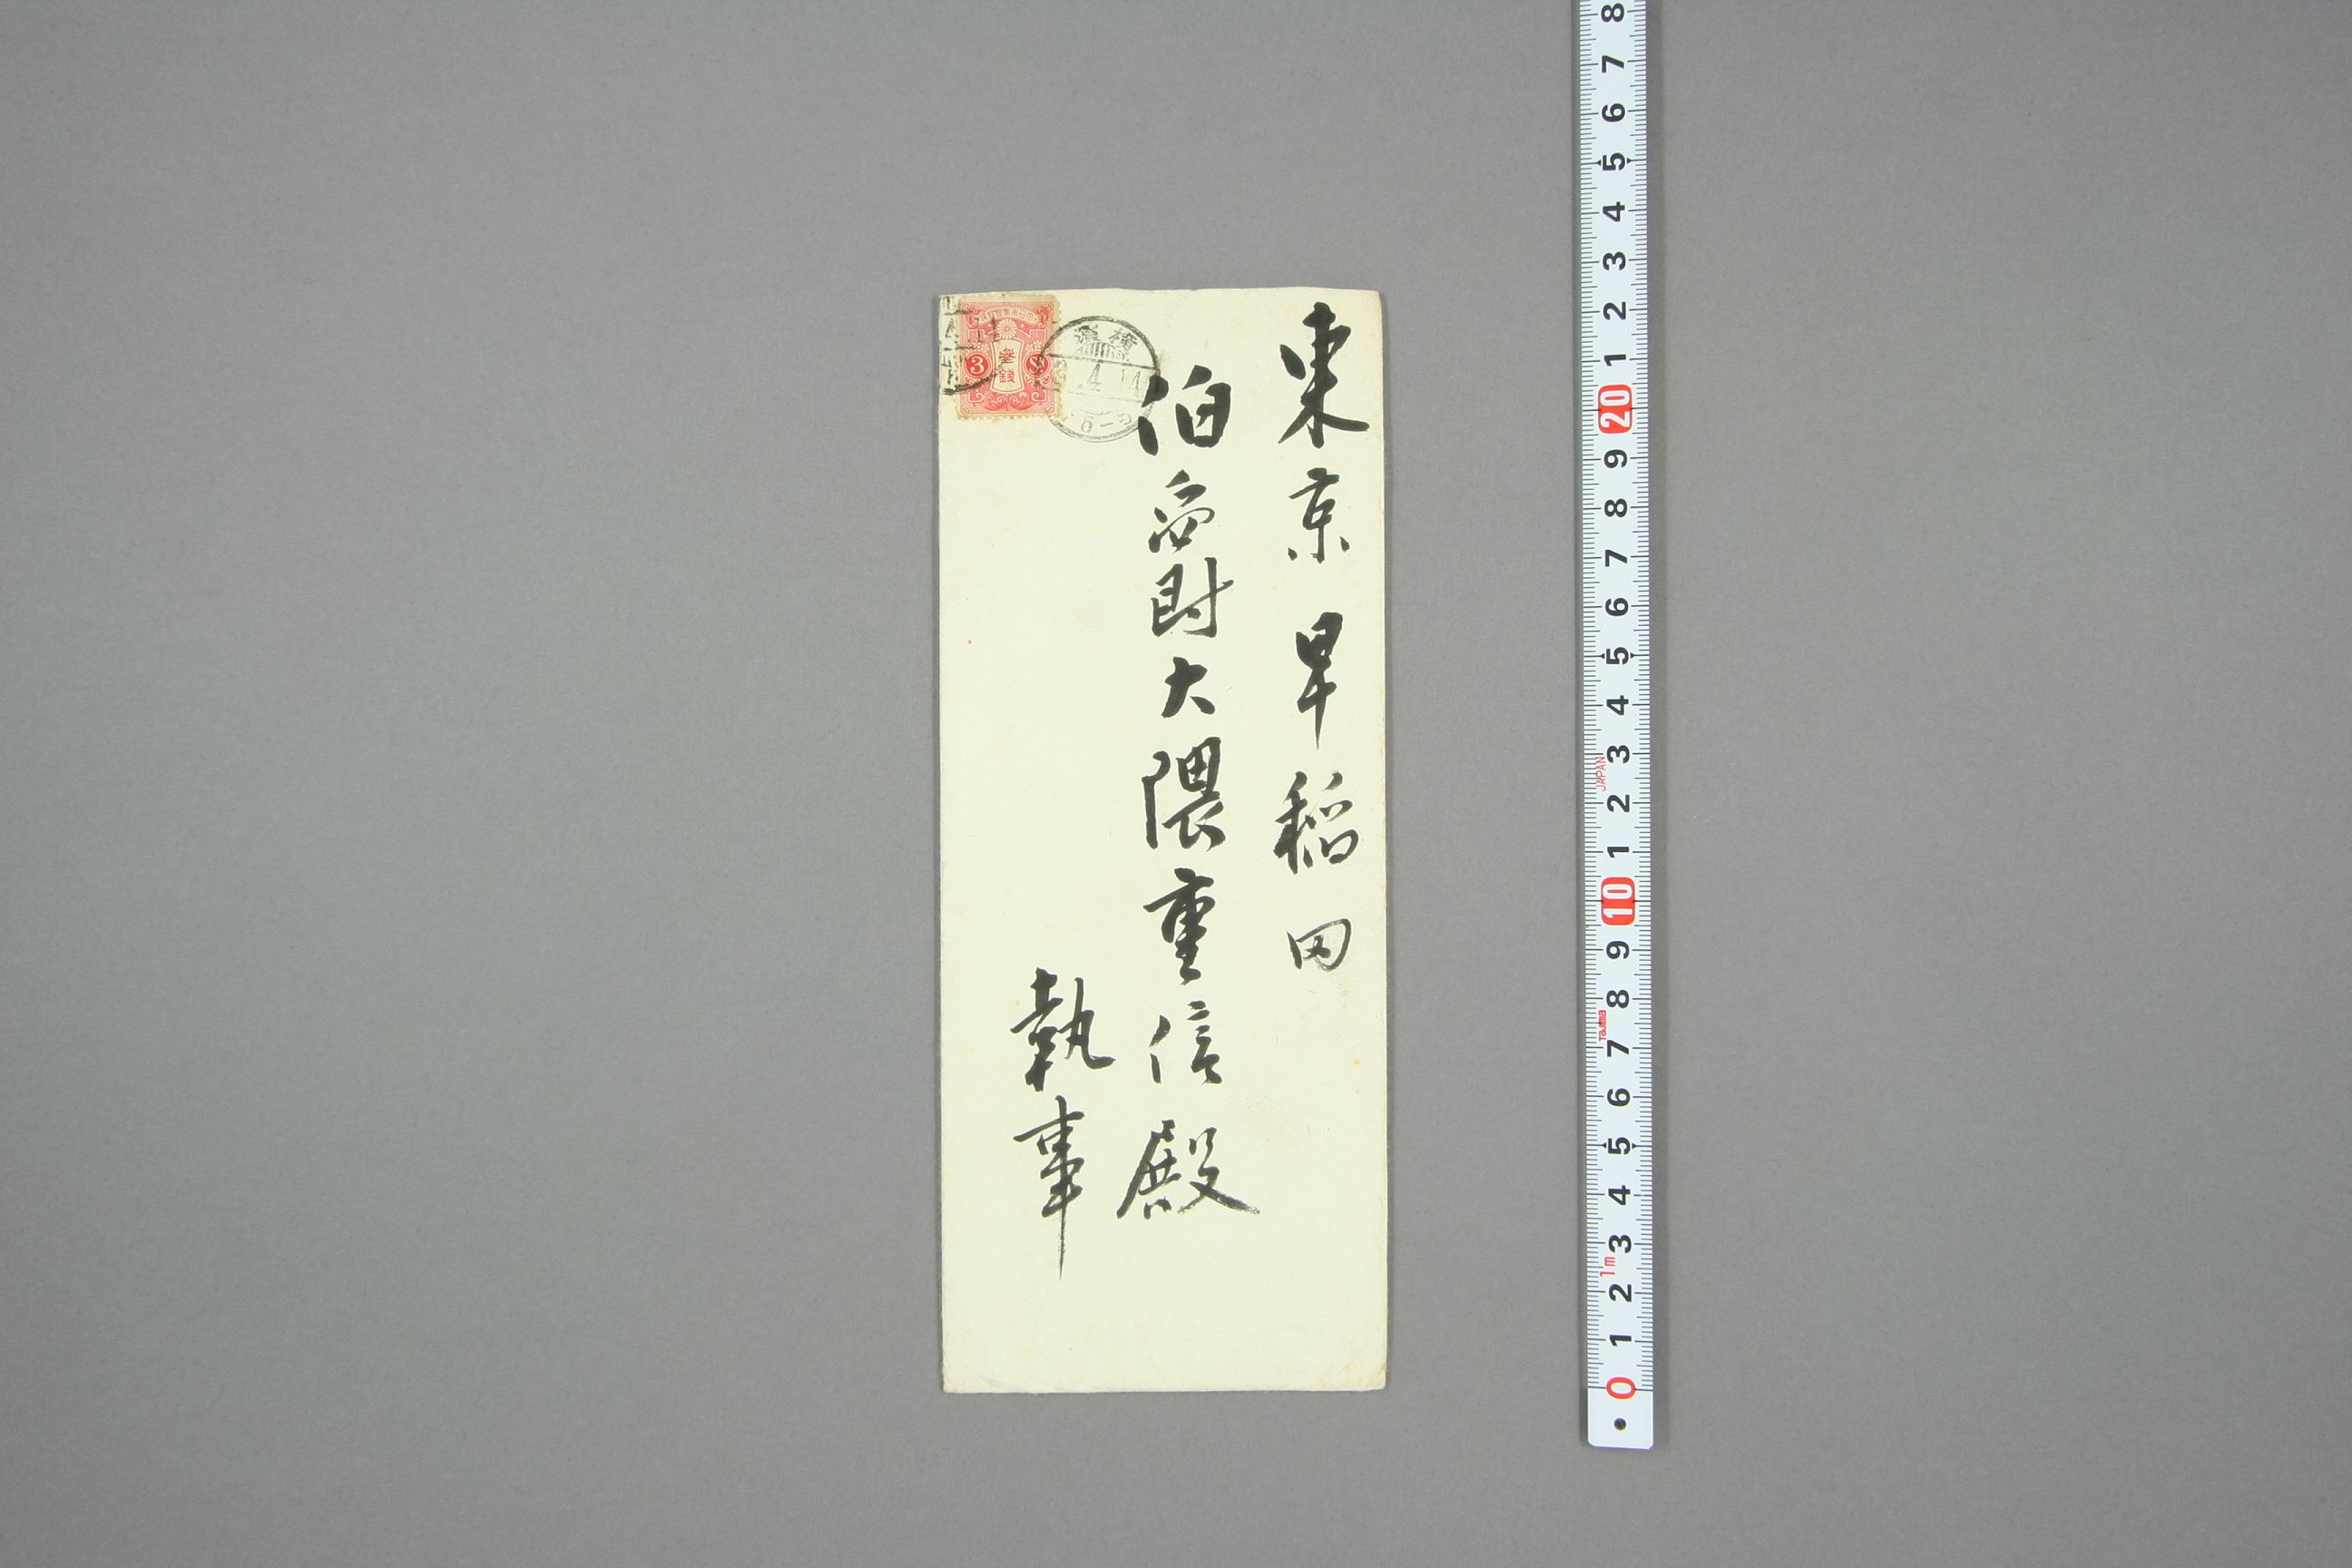 東京早稲田
伯爵大隈重信殿
執事
横濱
4.14
3
参銭
8
7
6
5
4
3
2
1
20
9
8
7
6
5
4
3
2
1
10
9
8
7
6
5
4
3
2
1
0
JAPAN
Tajima
1m